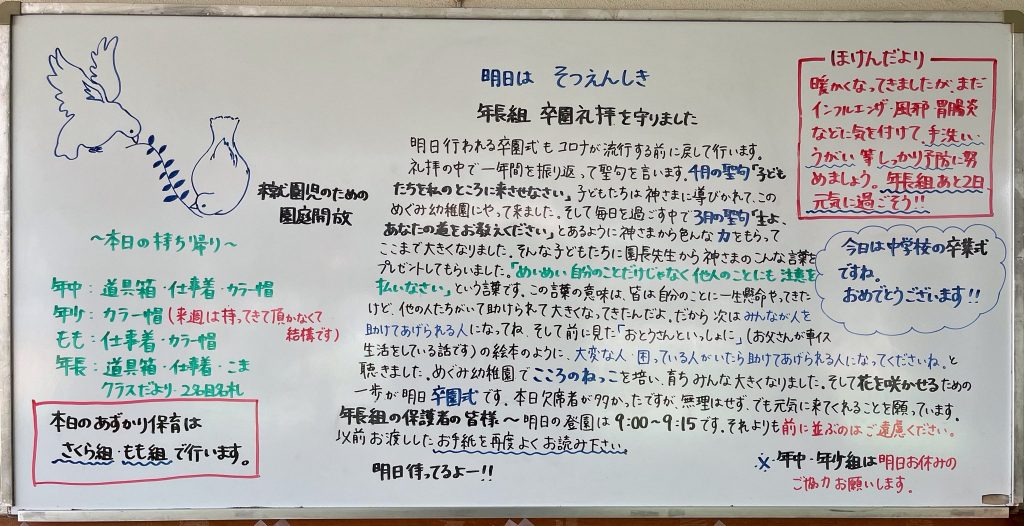 明日は そつえんしき
年長組 卒園礼拝を守りました
明日行われる卒園式もコロナが流行する前に戻して行います。
礼拝の中で一年間を振り返って聖句を言います。4月の聖句「子ども
たちを私のところに来させなさい」子どもたちは神さまに導びかれて、この
めぐみ幼稚園にやって来ました。そして毎日を過ごす中で3月の聖句「主よ、
あなたの道をお教えください」とあるように神さまから色んな力をもらって
ここまで大きくなりました。そんな子どもたちに園長先生から神さまのこんな言葉を
プレゼントしてもらいました。「めいめい自分のことだけじゃなく他人のことにも注意を
払いなさい」という言葉です。この言葉の意味は、皆は自分のことに一生懸命やってきた
けど、他の人たちがいて助けられて大きくなってきたんだよ。だから次はみんなが人を
助けてあげられる人になってね、そして前に見た「おとうさんといっしょに」(お父さんが車イス
生活をしている話です)の絵本のように、大変な人・困っている人がいたら助けてあげられる人になってくださいね。と
聴きました。めぐみ幼稚園でこころのねっこを培い、育ちみんな大きくなりました。そして花を咲かせるための
一歩が明日卒園式です。本日欠席者が多かったですが、無理はせず、でも元気に来てくれることを願っています。
年長組の保護者の皆様〜明日の登園は9:00〜9:15です。それよりも前に並ぶのはご遠慮ください。
以前お渡ししたお手紙を再度よくお読み下さい。
明日待ってるよー!!
※年中・年少組は明日お休みの
ご協力お願いします。
未就園児のための
園庭開放
〜本日の持ち帰り〜
年中:道具箱・仕事着・カラー帽
年少:カラー帽(来週は持ってきて頂かなくて
結構です)
もも:仕事着・カラー帽
年長:道具箱・仕事着・こま
クラスだより・2名目名札
本日のあずかり保育は
さくら組・もも組で行います。
ほけんだより
暖かくなってきましたが、まだ
インフルエンザ・風邪・胃腸炎
などに気を付けて手洗い・
うがい等しっかり予防に努
めましょう。年長組あと2日
元気に過ごそう!!
今日は中学校の卒業式
ですね。
おめでとうございます!!